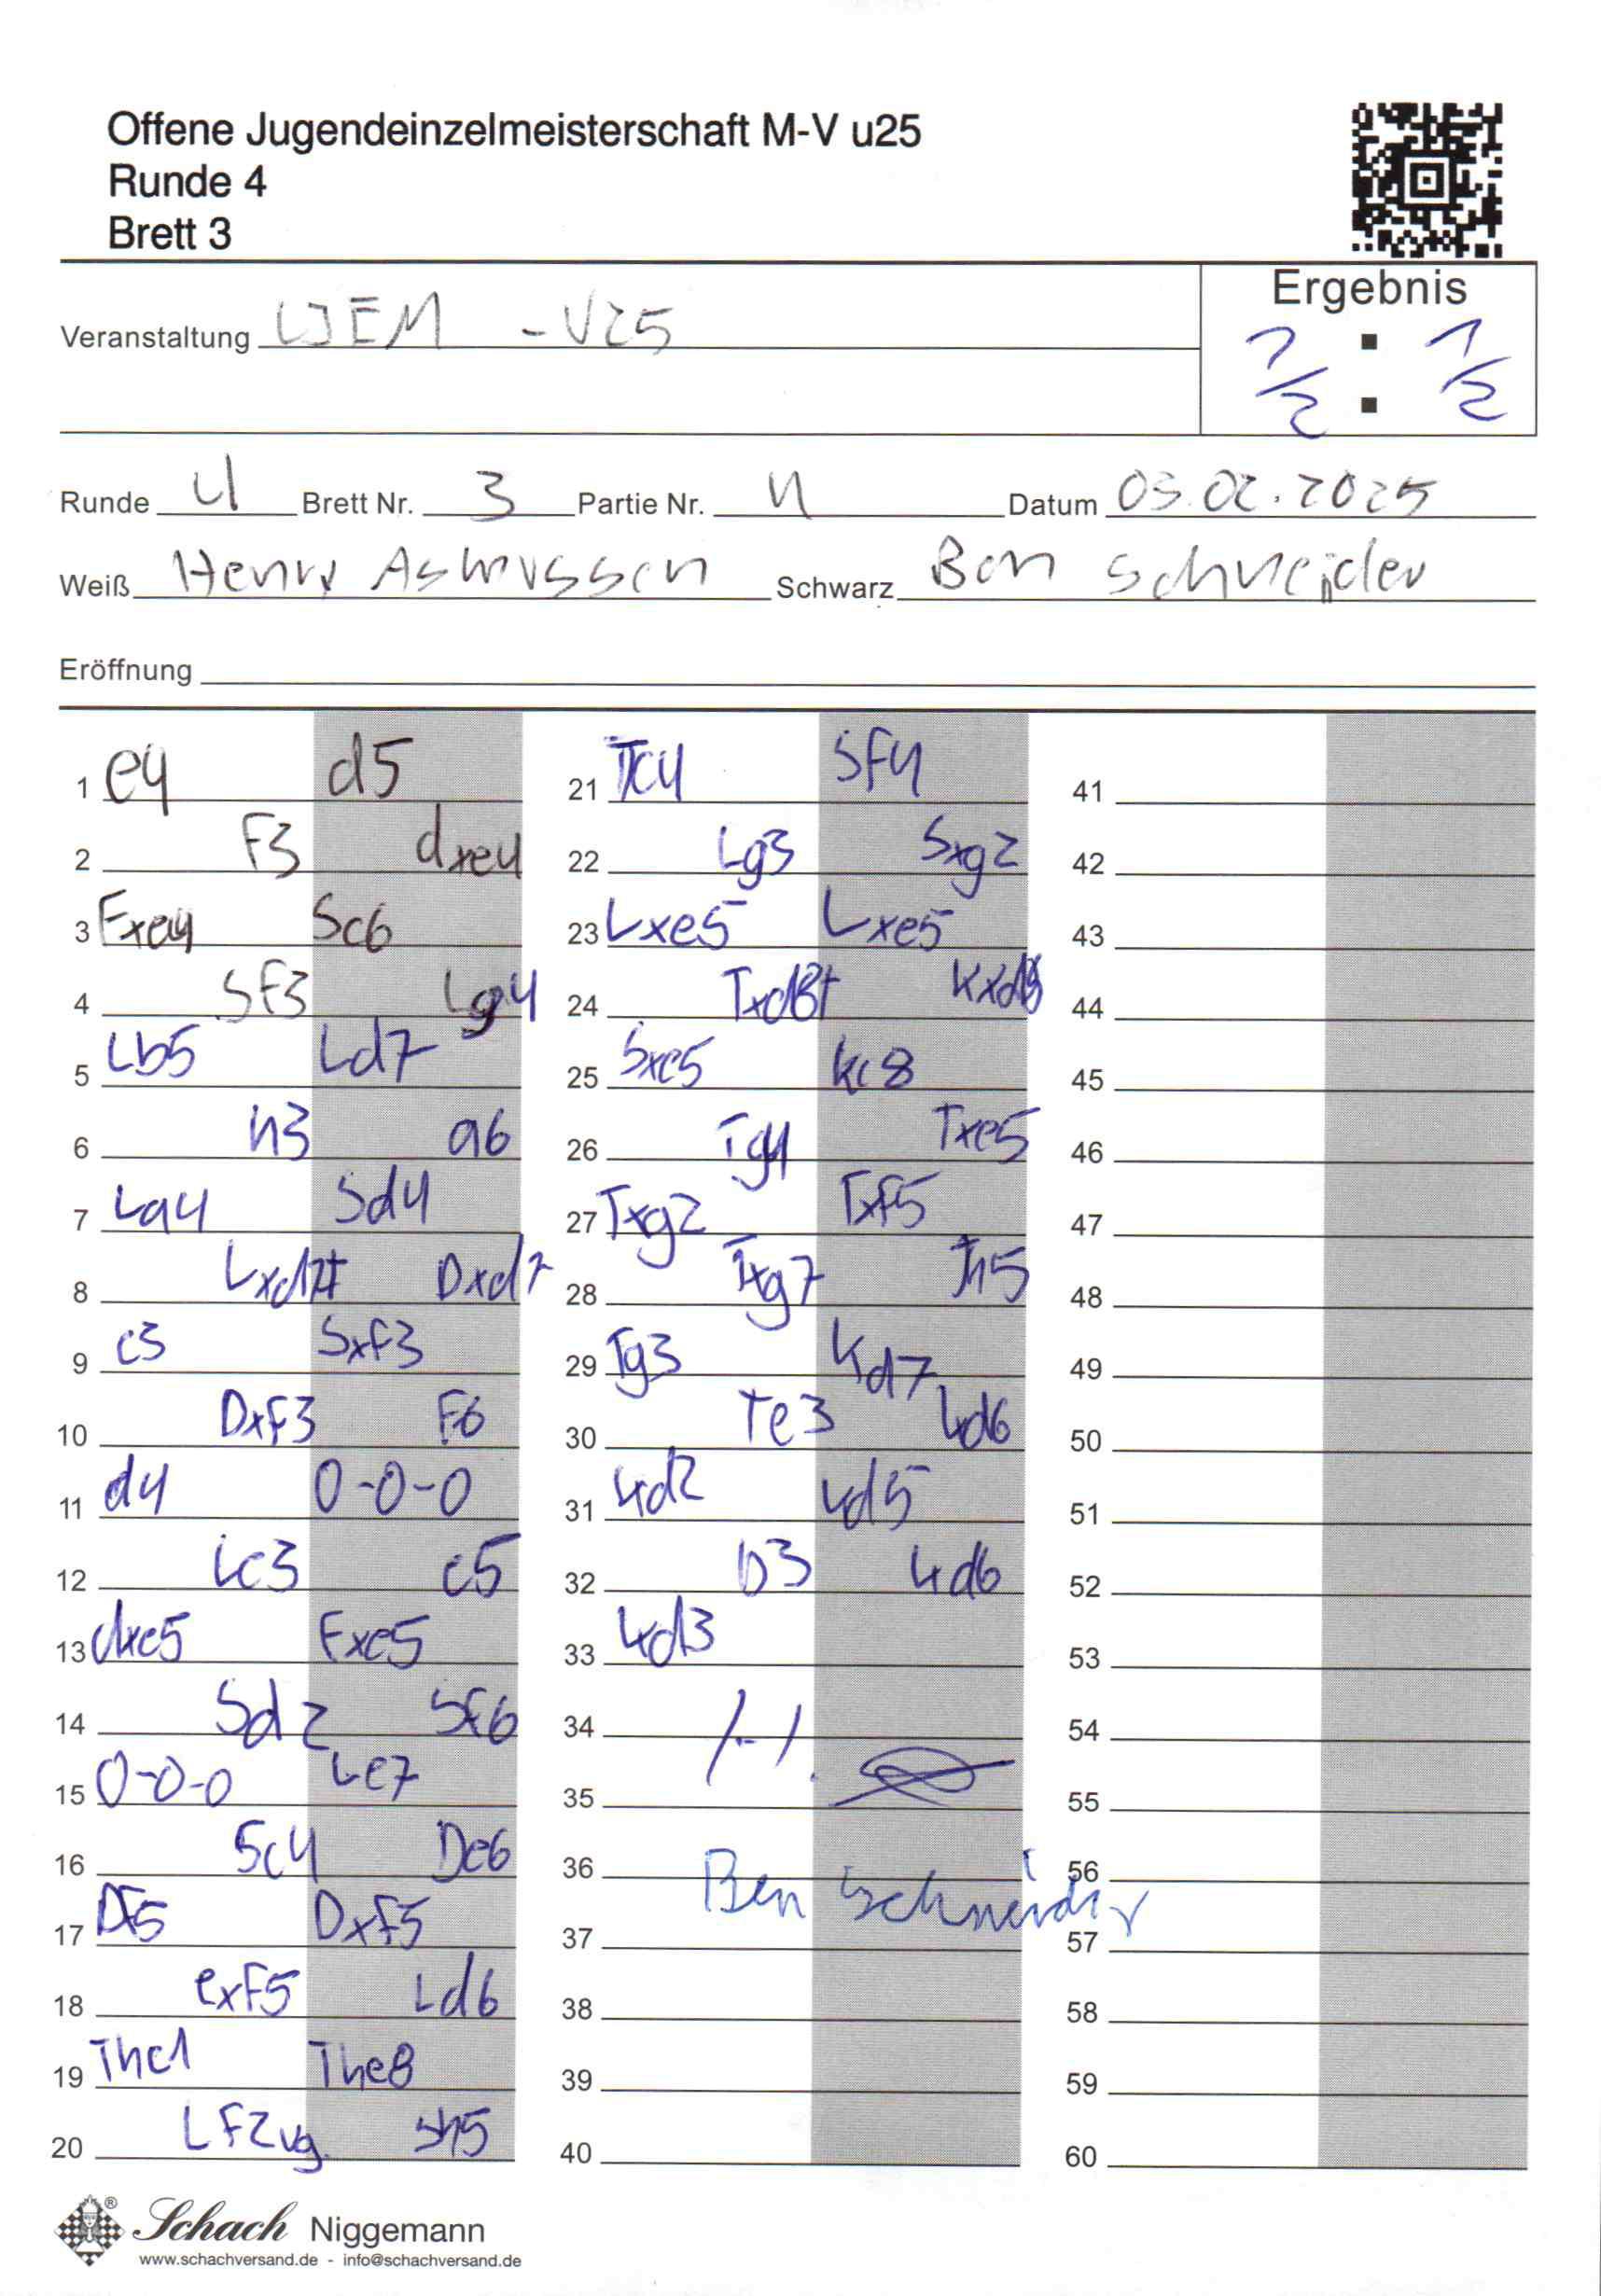 Offene Jugendeinzelmeisterschaft M-V u25
Runde 4
Brett 3
Ergebnis
Veranstaltung LJEM - U25
1/2 : 1/2
Runde 4 Brett Nr. 3 Partie Nr. 4 Datum 03.02.2025
Weiß Henry Asmussen Schwarz Ben Schneider
Eröffnung
1 e4 d5
2 F3 dxe4
3 Fxe4 Sc6
4 SF3 Lg4
5 Lb5 Ld7
6 h3 a6
7 La4 Sd4
8 Lxd7+ Dxd7
9 c3 SxF3
10 DxF3 F6
11 d4 0-0-0
12 Le3 e5
13 dxe5 Fxe5
14 Sd2 SF6
15 0-0-0 Le7
16 Sc4 De6
17 DF5 DxF5
18 exF5 Ld6
19 The1 The8
20 LF2 vg. Sh5
21 Tc4 SF4
22 Lg3 Sxg2
23 Lxe5 Lxe5
24 Txd8+ Kxd8
25 Sxe5 Kc8
26 Tg4 Txe5
27 Txg2 TxF5
28 Txg7 Th5
29 Tg3 Kd7
30 Te3 Kd6
31 Kd2 Kd5
32 b3 Kd6
33 Kd3
34
35
36 Ben Schneider
37
38
39
40
41
42
43
44
45
46
47
48
49
50
51
52
53
54
55
56
57
58
59
60
Schach Niggemann
www.schachversand.de - info@schachversand.de